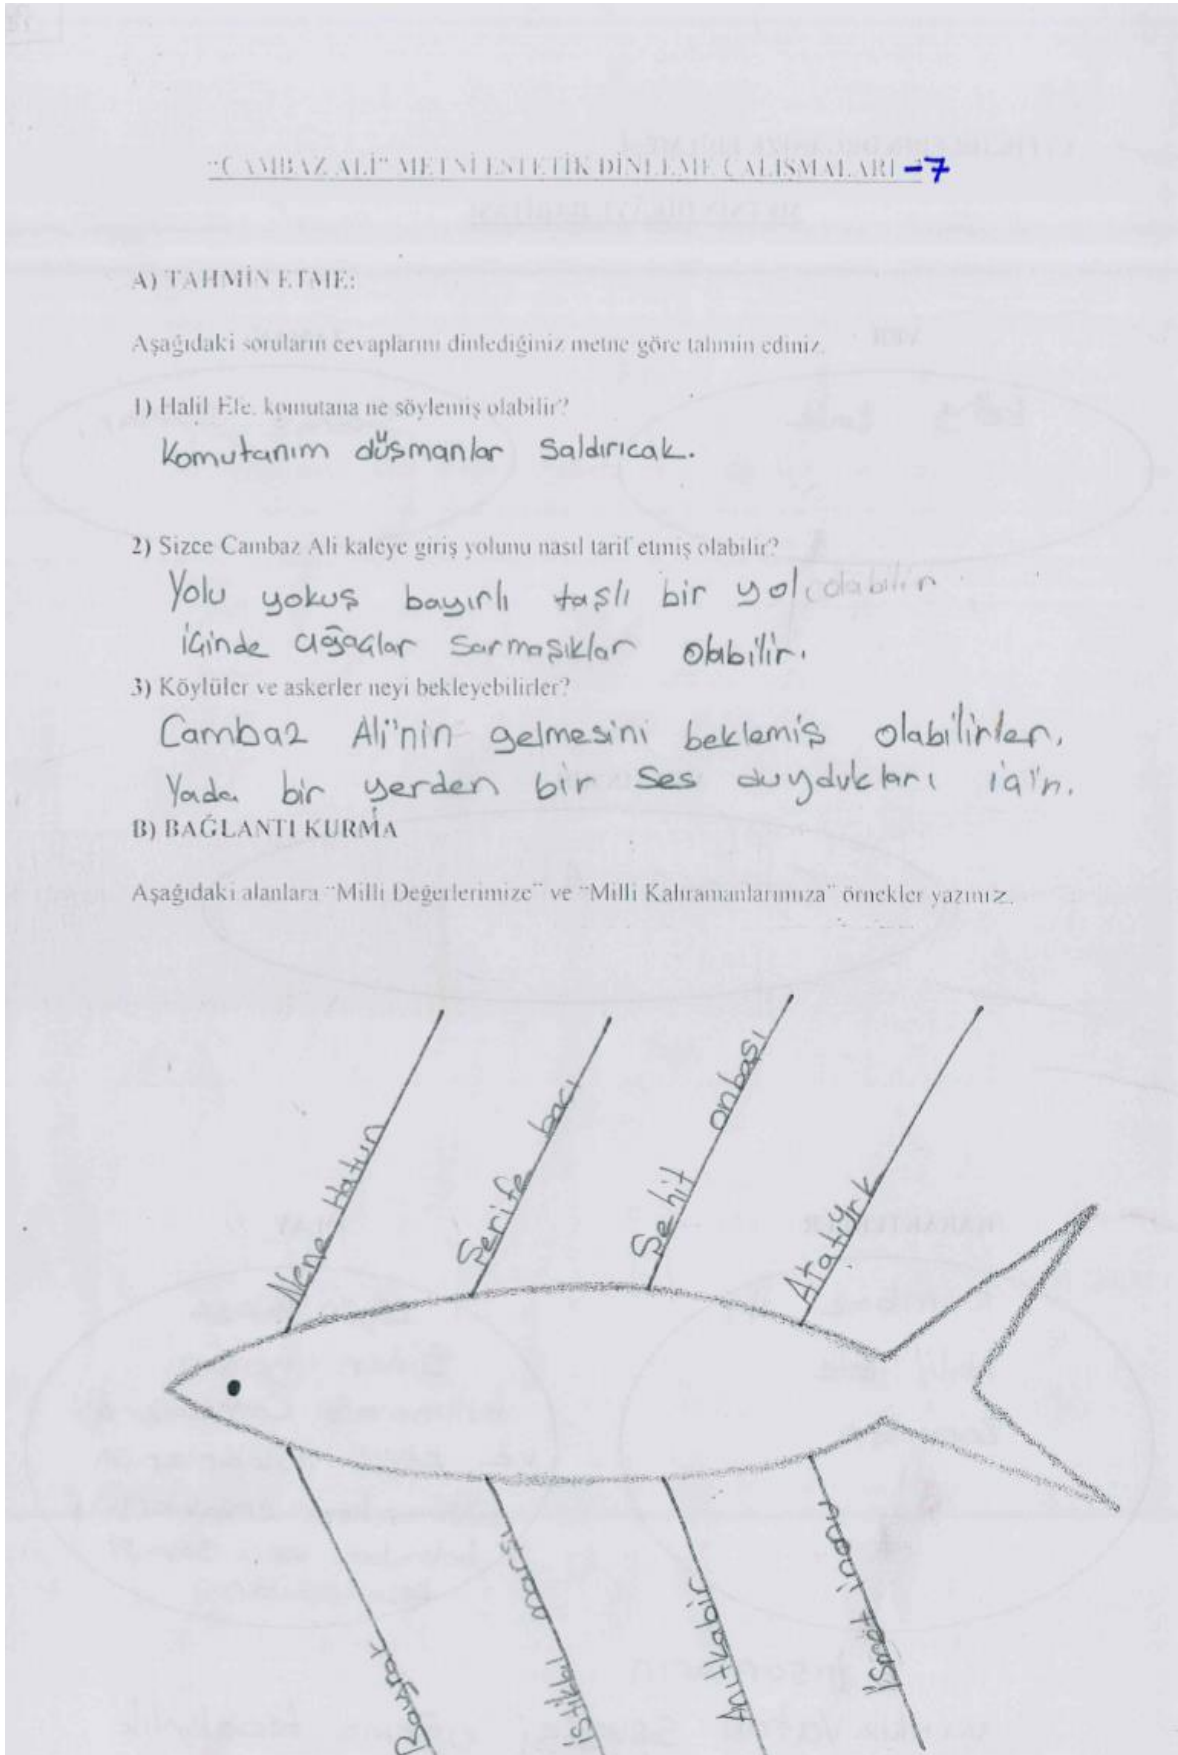 "CAMBAZ ALİ" METNİ ESTETİK DİNLEME ÇALIŞMALARI -7
A) TAHMİN ETME:
Aşağıdaki soruların cevaplarını dinlediğiniz metne göre tahmin ediniz.
1) Halil Efe, komutana ne söylemiş olabilir?
Komutanım düşmanlar Saldırıcak.
2) Sizce Cambaz Ali kaleye giriş yolunu nasıl tarif etmiş olabilir?
Yolu yokuş bayırlı taşlı bir yol olabilir
içinde ağaçlar sarmaşıklar olabilir.
3) Köylüler ve askerler neyi bekleyebilirler?
Cambaz Ali'nin gelmesini beklemiş olabilirler.
Yada bir yerden bir ses duydukları için.
B) BAĞLANTI KURMA
Aşağıdaki alanlara "Milli Değerlerimize" ve "Milli Kahramanlarımıza" örnekler yazınız.
Nene Hatun
Şerife bacı
Şehit onbaşı
Atatürk
Bayrak
istiklal marşı
Anıtkabir
İsmet inönü